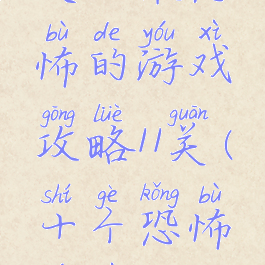 bù de yóu xì
怖的游戏
gōng lüè guān
攻略11关(
shí gè kǒng bù
十个恐怖